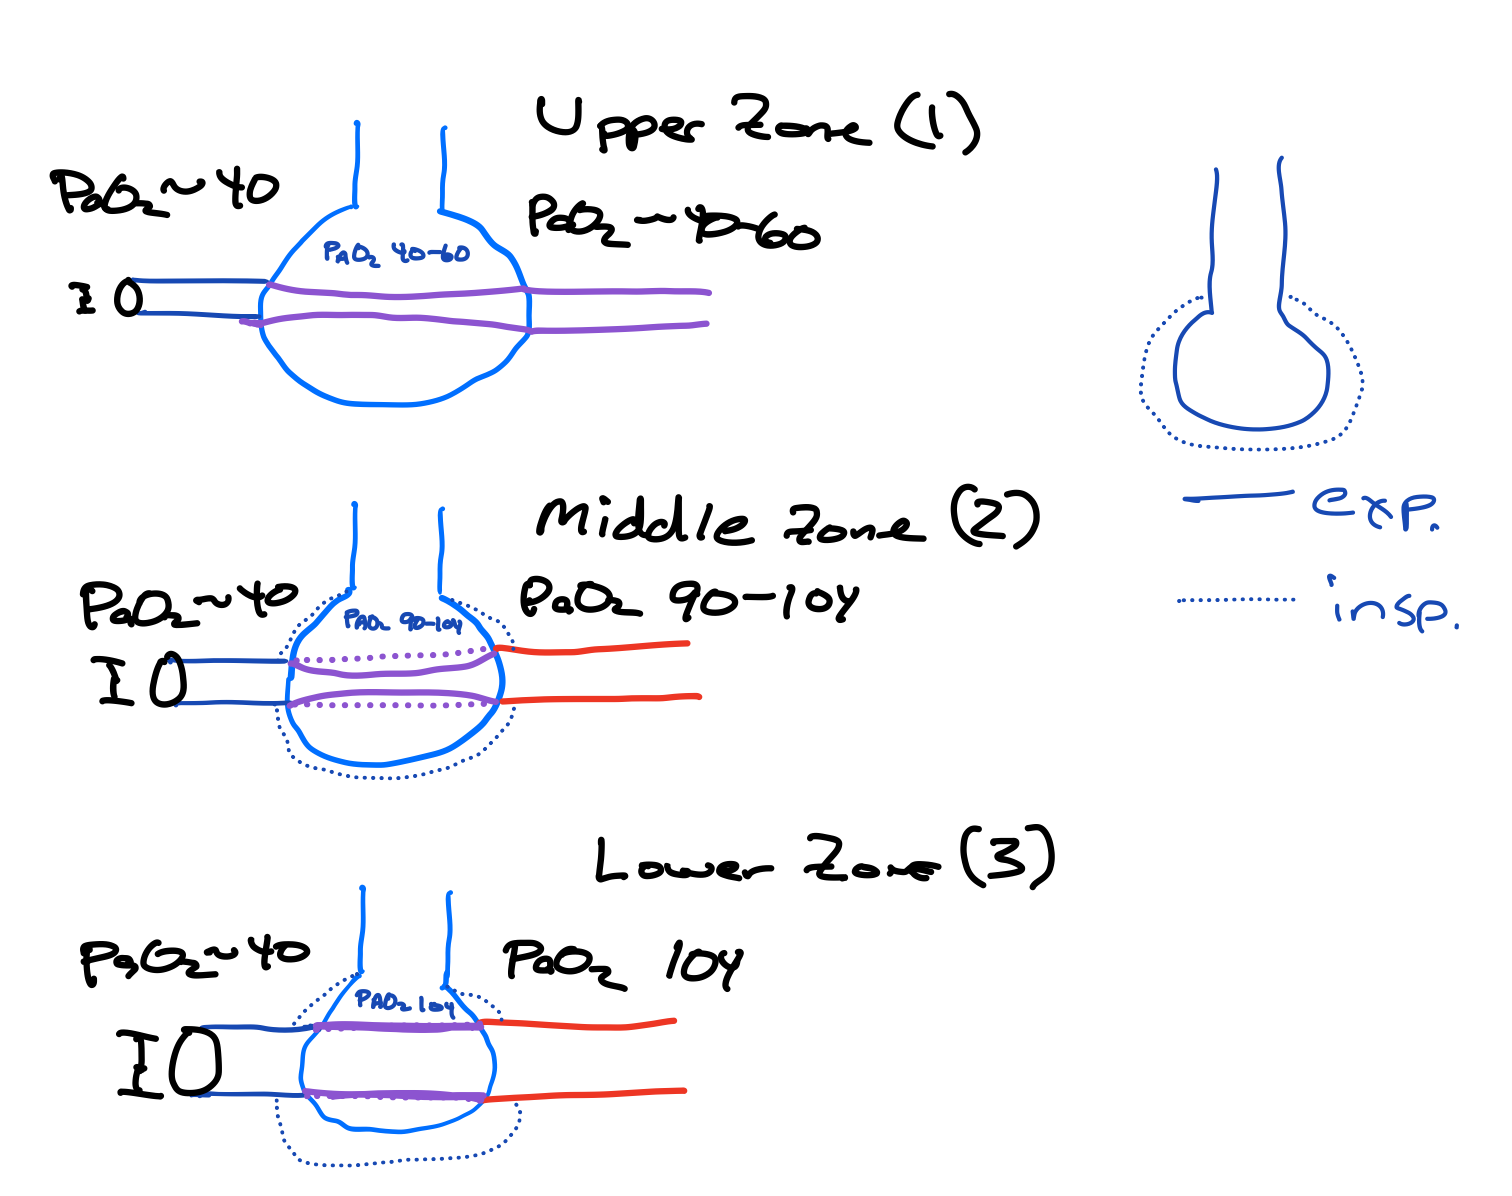 Upper Zone (1)
PaO₂ ~ 40
PaO₂ ~ 40-60
PAO₂ 40-60
I
Middle Zone (2)
PaO₂ ~ 40
PaO₂ 90-104
PAO₂ 90-104
I
exp.
insp.
Lower Zone (3)
PaO₂ ~ 40
PaO₂ 104
PAO₂ 104
I